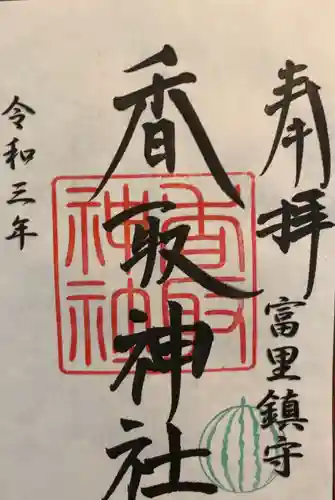 奉拝
富里鎮守
香取神社
令和三年
香取神社